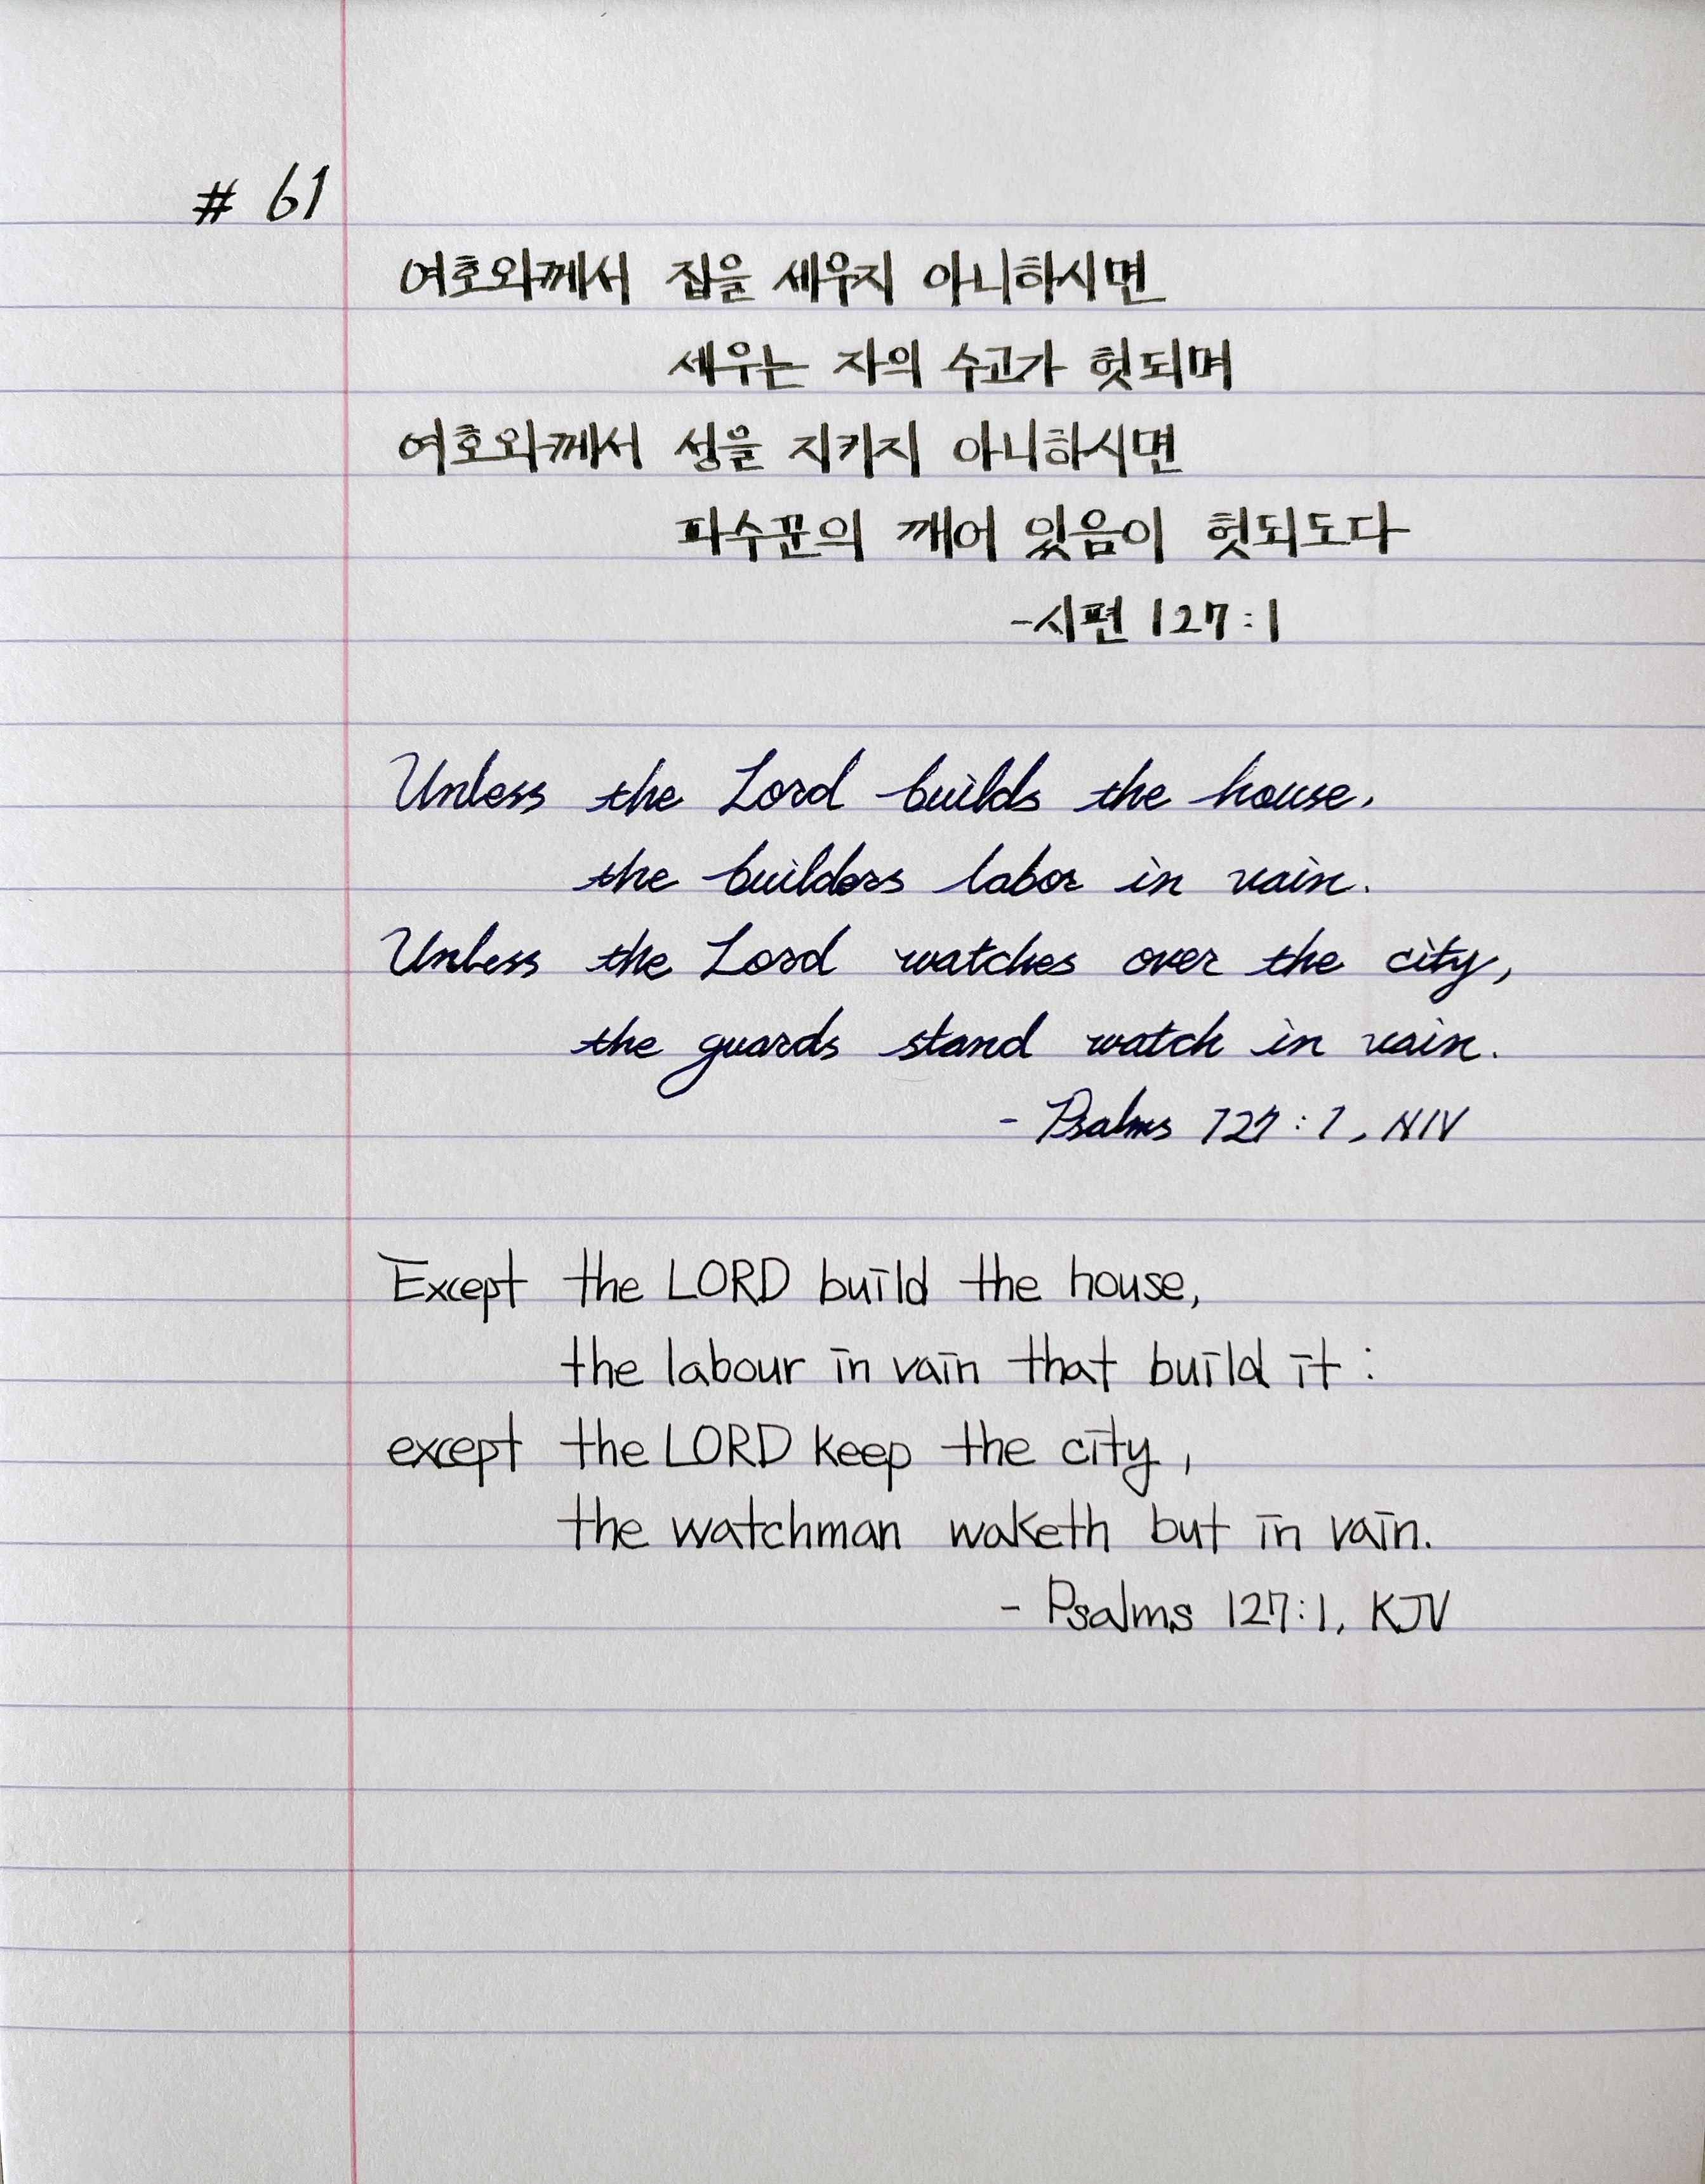 # 61
여호와께서 집을 세우지 아니하시면
세우는 자의 수고가 헛되며
여호와께서 성을 지키지 아니하시면
파수꾼의 깨어 있음이 헛되도다
-시편 127:1
Unless the Lord builds the house,
the builders labor in vain.
Unless the Lord watches over the city,
the guards stand watch in vain.
- Psalms 127:1, NIV
Except the LORD build the house,
the labour in vain that build it:
except the LORD keep the city,
the watchman waketh but in vain.
- Psalms 127:1, KJV